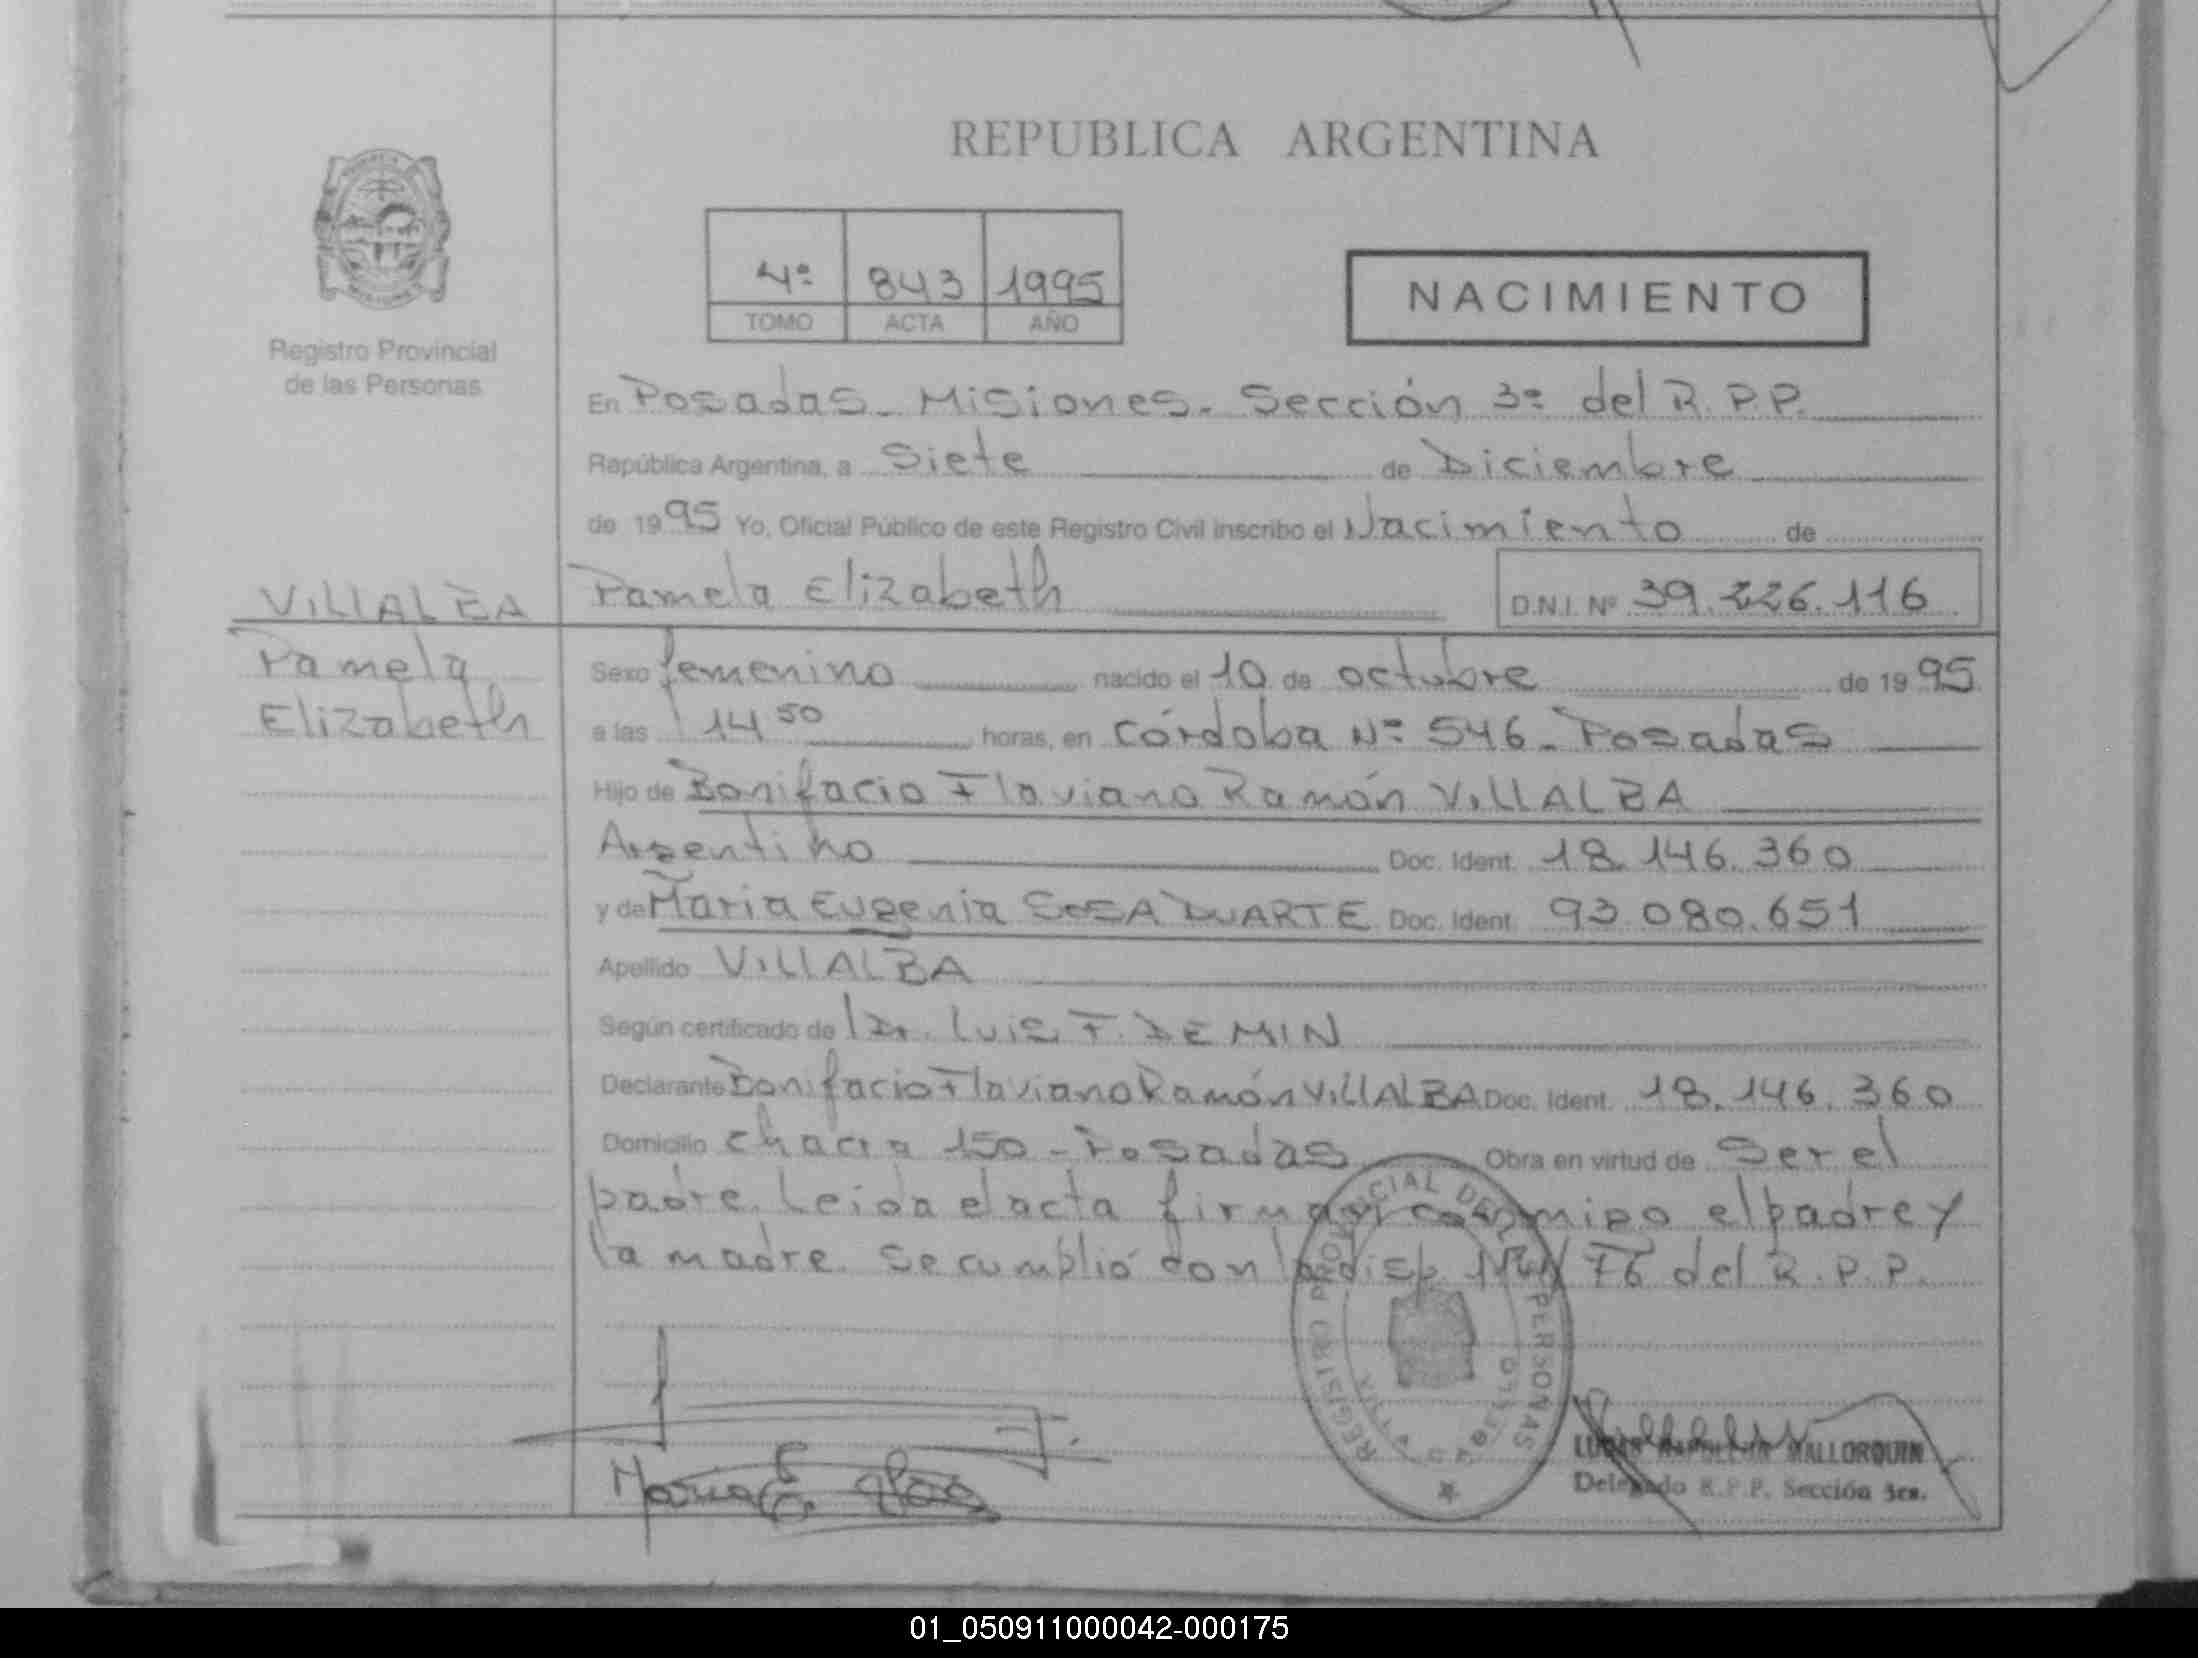 REPUBLICA ARGENTINA
Registro Provincial
de las Personas
4º 843 1995
TOMO ACTA AÑO
NACIMIENTO
En Posadas - Misiones - Sección 3º del R.P.P.
República Argentina, a Siete de Diciembre
de 1995 Yo, Oficial Público de este Registro Civil inscribo el Nacimiento de
Pamela Elizabeth D.N.I. Nº 39.226.116
VillALBA
Pamela
Elizabeth
Sexo femenino nacido el 10 de octubre de 1995
a las 14 50 horas, en Córdoba Nº 546 - Posadas
Hijo de Bonifacio Flaviano Ramón VillALBA
Argentino Doc. Ident. 18.146.360
y de Maria Eugenia SOSA DUARTE Doc. Ident. 93.080.651
Apellido VillALBA
Según certificado de Dr. Luis F. DEMIN
Declarante Bonifacio Flaviano Ramón VillALBA Doc. Ident. 18.146.360
Domicilio Chacra 150 - Posadas Obra en virtud de Ser el
padre. Leida el acta firman conmigo el padre y
la madre. Se cumplió con la disp. 76 del R.P.P.
REGISTRO PROVINCIAL DE LAS PERSONAS
Maria E.
MALLORQUIN
Delegado R.P.P. Sección 3ra.
01_050911000042-000175